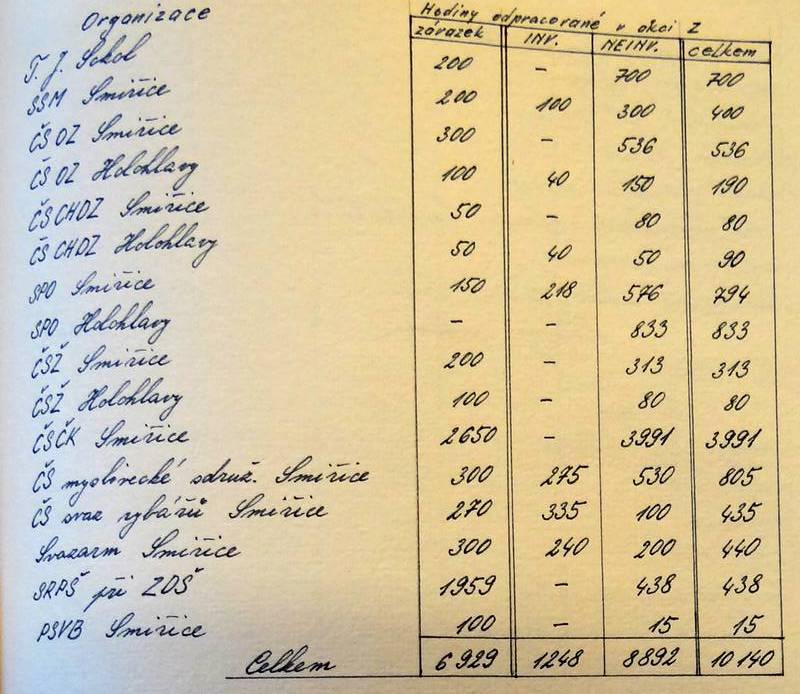 Organizace Hodiny odpracované v akci Z
závazek INV. NEINV. celkem
T. J. Sokol 200 – 700 700
SSM Smiřice 200 100 300 400
ČSOZ Smiřice 300 – 536 536
ČSOZ Holohlavy 100 40 150 190
ČSCHDZ Smiřice 50 – 80 80
ČSCHDZ Holohlavy 50 40 50 90
SPO Smiřice 150 218 576 794
SPO Holohlavy – – 833 833
ČSŽ Smiřice 200 – 313 313
ČSŽ Holohlavy 100 – 80 80
ČSČK Smiřice 2650 – 3991 3991
ČS myslivecké sdruž. Smiřice 300 275 530 805
ČS svaz rybářů Smiřice 270 335 100 435
Svazarm Smiřice 300 240 200 440
SRPŠ při ZDŠ 1959 – 438 438
PSVB Smiřice 100 – 15 15
Celkem 6 929 1248 8892 10 140